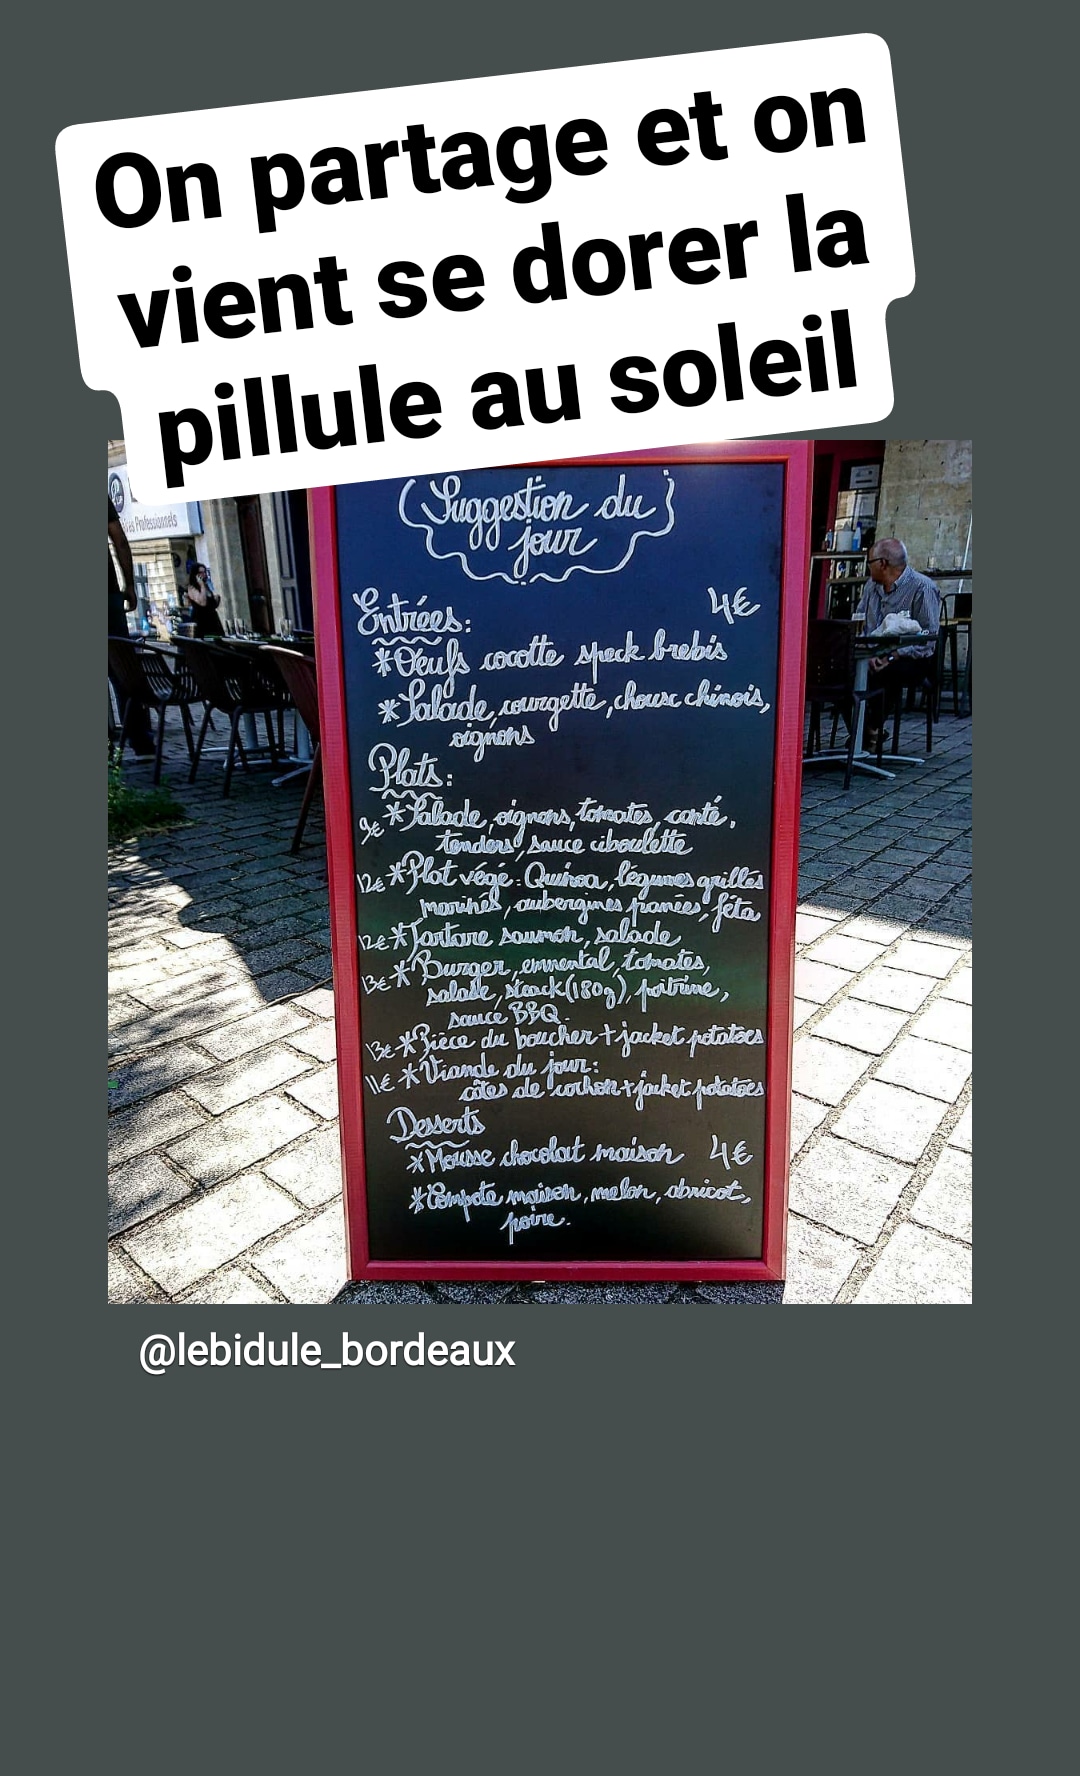 On partage et on
vient se dorer la
pillule au soleil
Professionnels
Suggestion du
jour
Entrées: 4€
*Oeufs cocotte speck brebis
*Salade, courgette, choux chinois,
oignons
Plats:
9€ *Salade, oignons, tomates, conté,
tenders, sauce ciboulette
12€ *Plat végé: Quinoa, légumes grillés
marinés, aubergines panées, féta
12€ *Tartare saumon, salade
13€ *Burger, emmental, tomates,
salade, steack(180g), poitrine,
sauce BBQ.
13€ *Pièce du boucher + jacket potatoes
11€ *Viande du jour:
côtes de cochon + jacket potatoes
Desserts
*Mousse chocolat maison 4€
*Compote maison, melon, abricot,
poire.
@lebidule_bordeaux